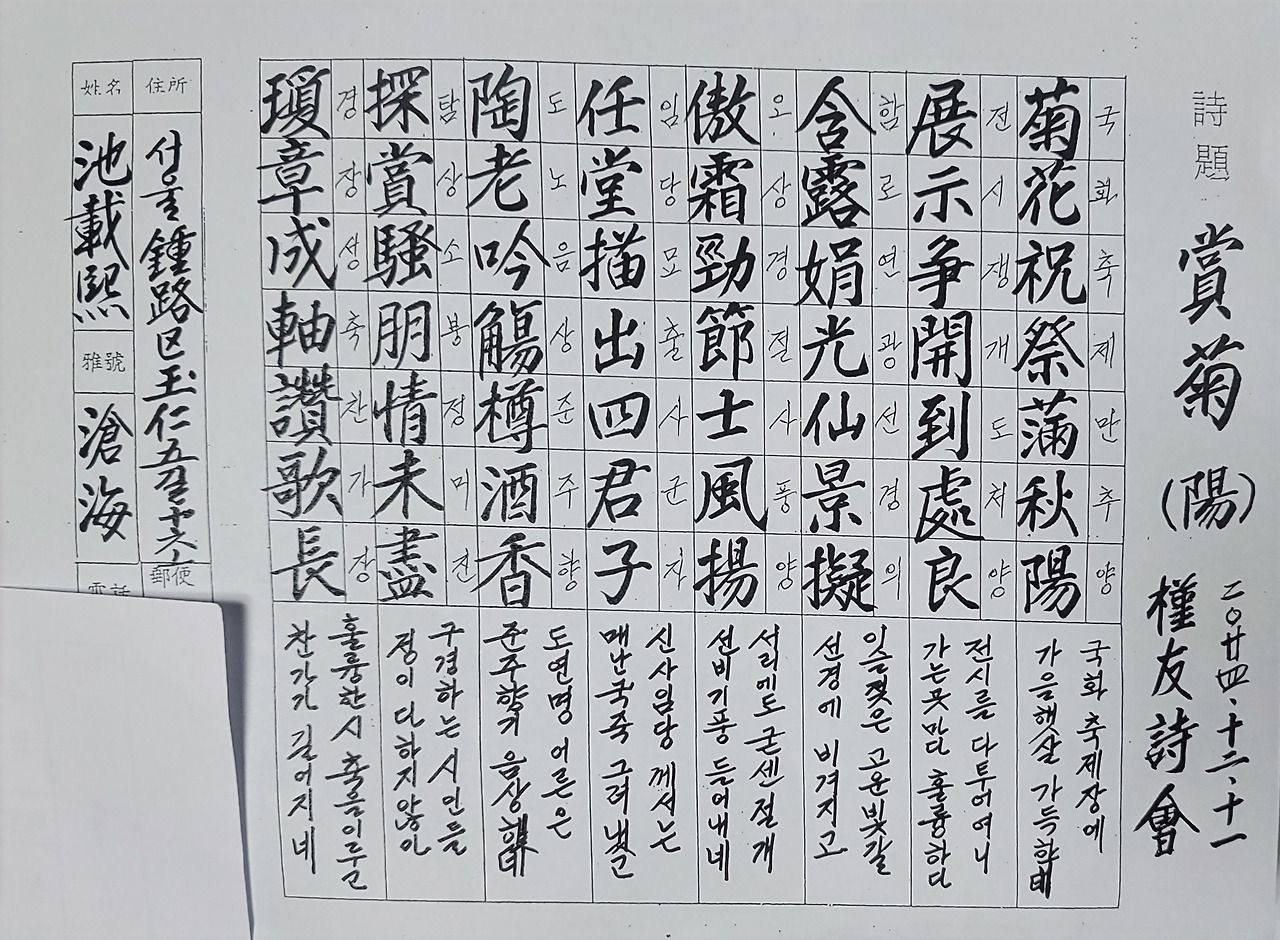 詩題 賞菊 (陽)
二〇廿四、十二、十一
槿友詩會
菊花祝祭滿秋陽
국화축제만추양
국화 축제장에
가을햇살 가득한데
展示爭開到處良
전시쟁개도처양
전시를 다투어여니
가는곳마다 훌륭하다
含露娟光仙景擬
함로연광선경의
이슬젖은 고운빛갈
선경에 비겨지고
傲霜勁節士風揚
오상경절사풍양
서리에도 굳센절개
선비기풍 들어내네
任堂描出四君子
임당묘출사군자
신사임당 께서는
매난국죽 그려냈고
陶老吟觴樽酒香
도노음상준주향
도연명 어른은
준주향기 음상
探賞騷朋情未盡
탐상소붕정미진
구경하는 시인들
정이 다하지않아
瓊章成軸讚歌長
경장성축찬가장
훌륭한시 축을이루고
찬가가 길어지네
住所
서울 鍾路区 玉仁五길 十六
郵便
姓名
池載熙
雅號
滄海